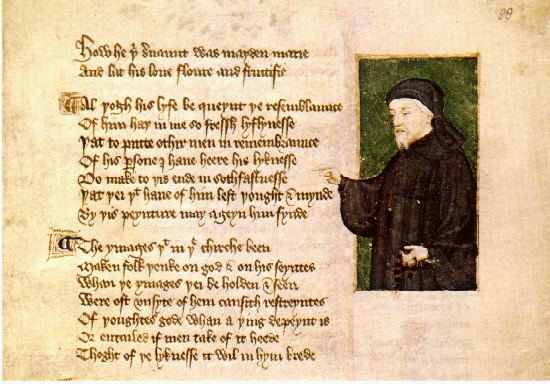 88
How he þⁱ s̉uaunt was mayden marie
And lat his loue floure and fructifie
Al þogh his lyfe be queynt þe resemblaunce
Of him haþ in me so fressh lyflynesse
Þat to putte othir men in remembraunce
Of his ꝑsone I haue heere his lyknesse
Do make to þis ende in sothfastnesse
Þat þei þᵗ haue of him left þought & mynde
By þis peynture may ageyn him fynde
The ymages þᵗ in þᵉ chirche been
Maken folk þenke on god & on his seyntes
Whan þe ymages þei be holden & seen
Were oft vnsyte of hem causith restreyntes
Of þoughtes gode whan a þing depeynt is
Or entailed if men take of it heede
Thoght of þe lyknesse it wil in hym brede